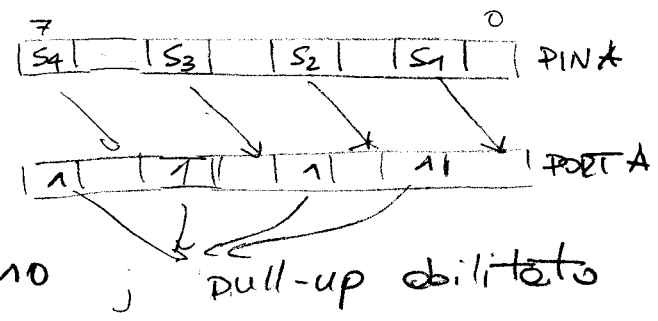 7 0
S4 S3 S2 S1 PINA
1 1 1 1 PORTA
10 ; pull-up abilitato